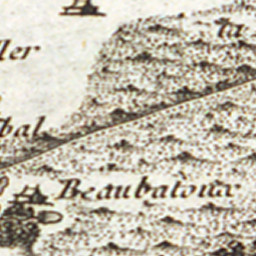 ta
ler
bal
Beaubatoux